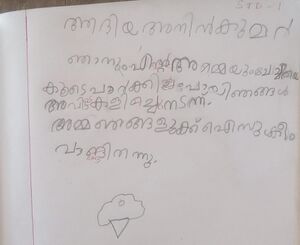 STD - 1
ആദിയ അനിൽകുമാർ
ഞാനും എന്റെ അമ്മയും ചേച്ചിയും
കൂടെ പാർക്കിൽ പോയി ഞങ്ങൾ
അവിടെ കളിച്ചു നടന്നു.
അമ്മ ഞങ്ങളുക്ക് ഐസുക്രീം
വാങ്ങി തന്നു.